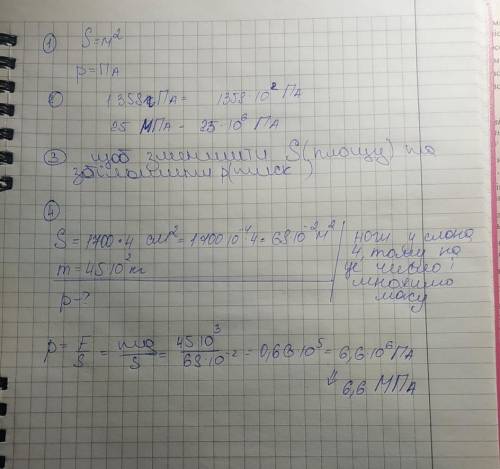 ① S=м²
p=ПА
② 1358гПА= 1358·10² ПА
25 МПА = 25·10⁶ ПА
③ щоб зменшити S(площу) та
збільшити p(тиск)
④
S = 1700·4 см² = 1700·10⁻⁴·4 = 68·10⁻² м²
m = 45·10² кг
p-?
ноги у слона
4, тому на
це число і
множимо
масу
p = F/S = mg/S = 45·10³/68·10⁻² = 0,66·10⁵ = 6,6·10⁶ ПА
⇓ 6,6 МПА